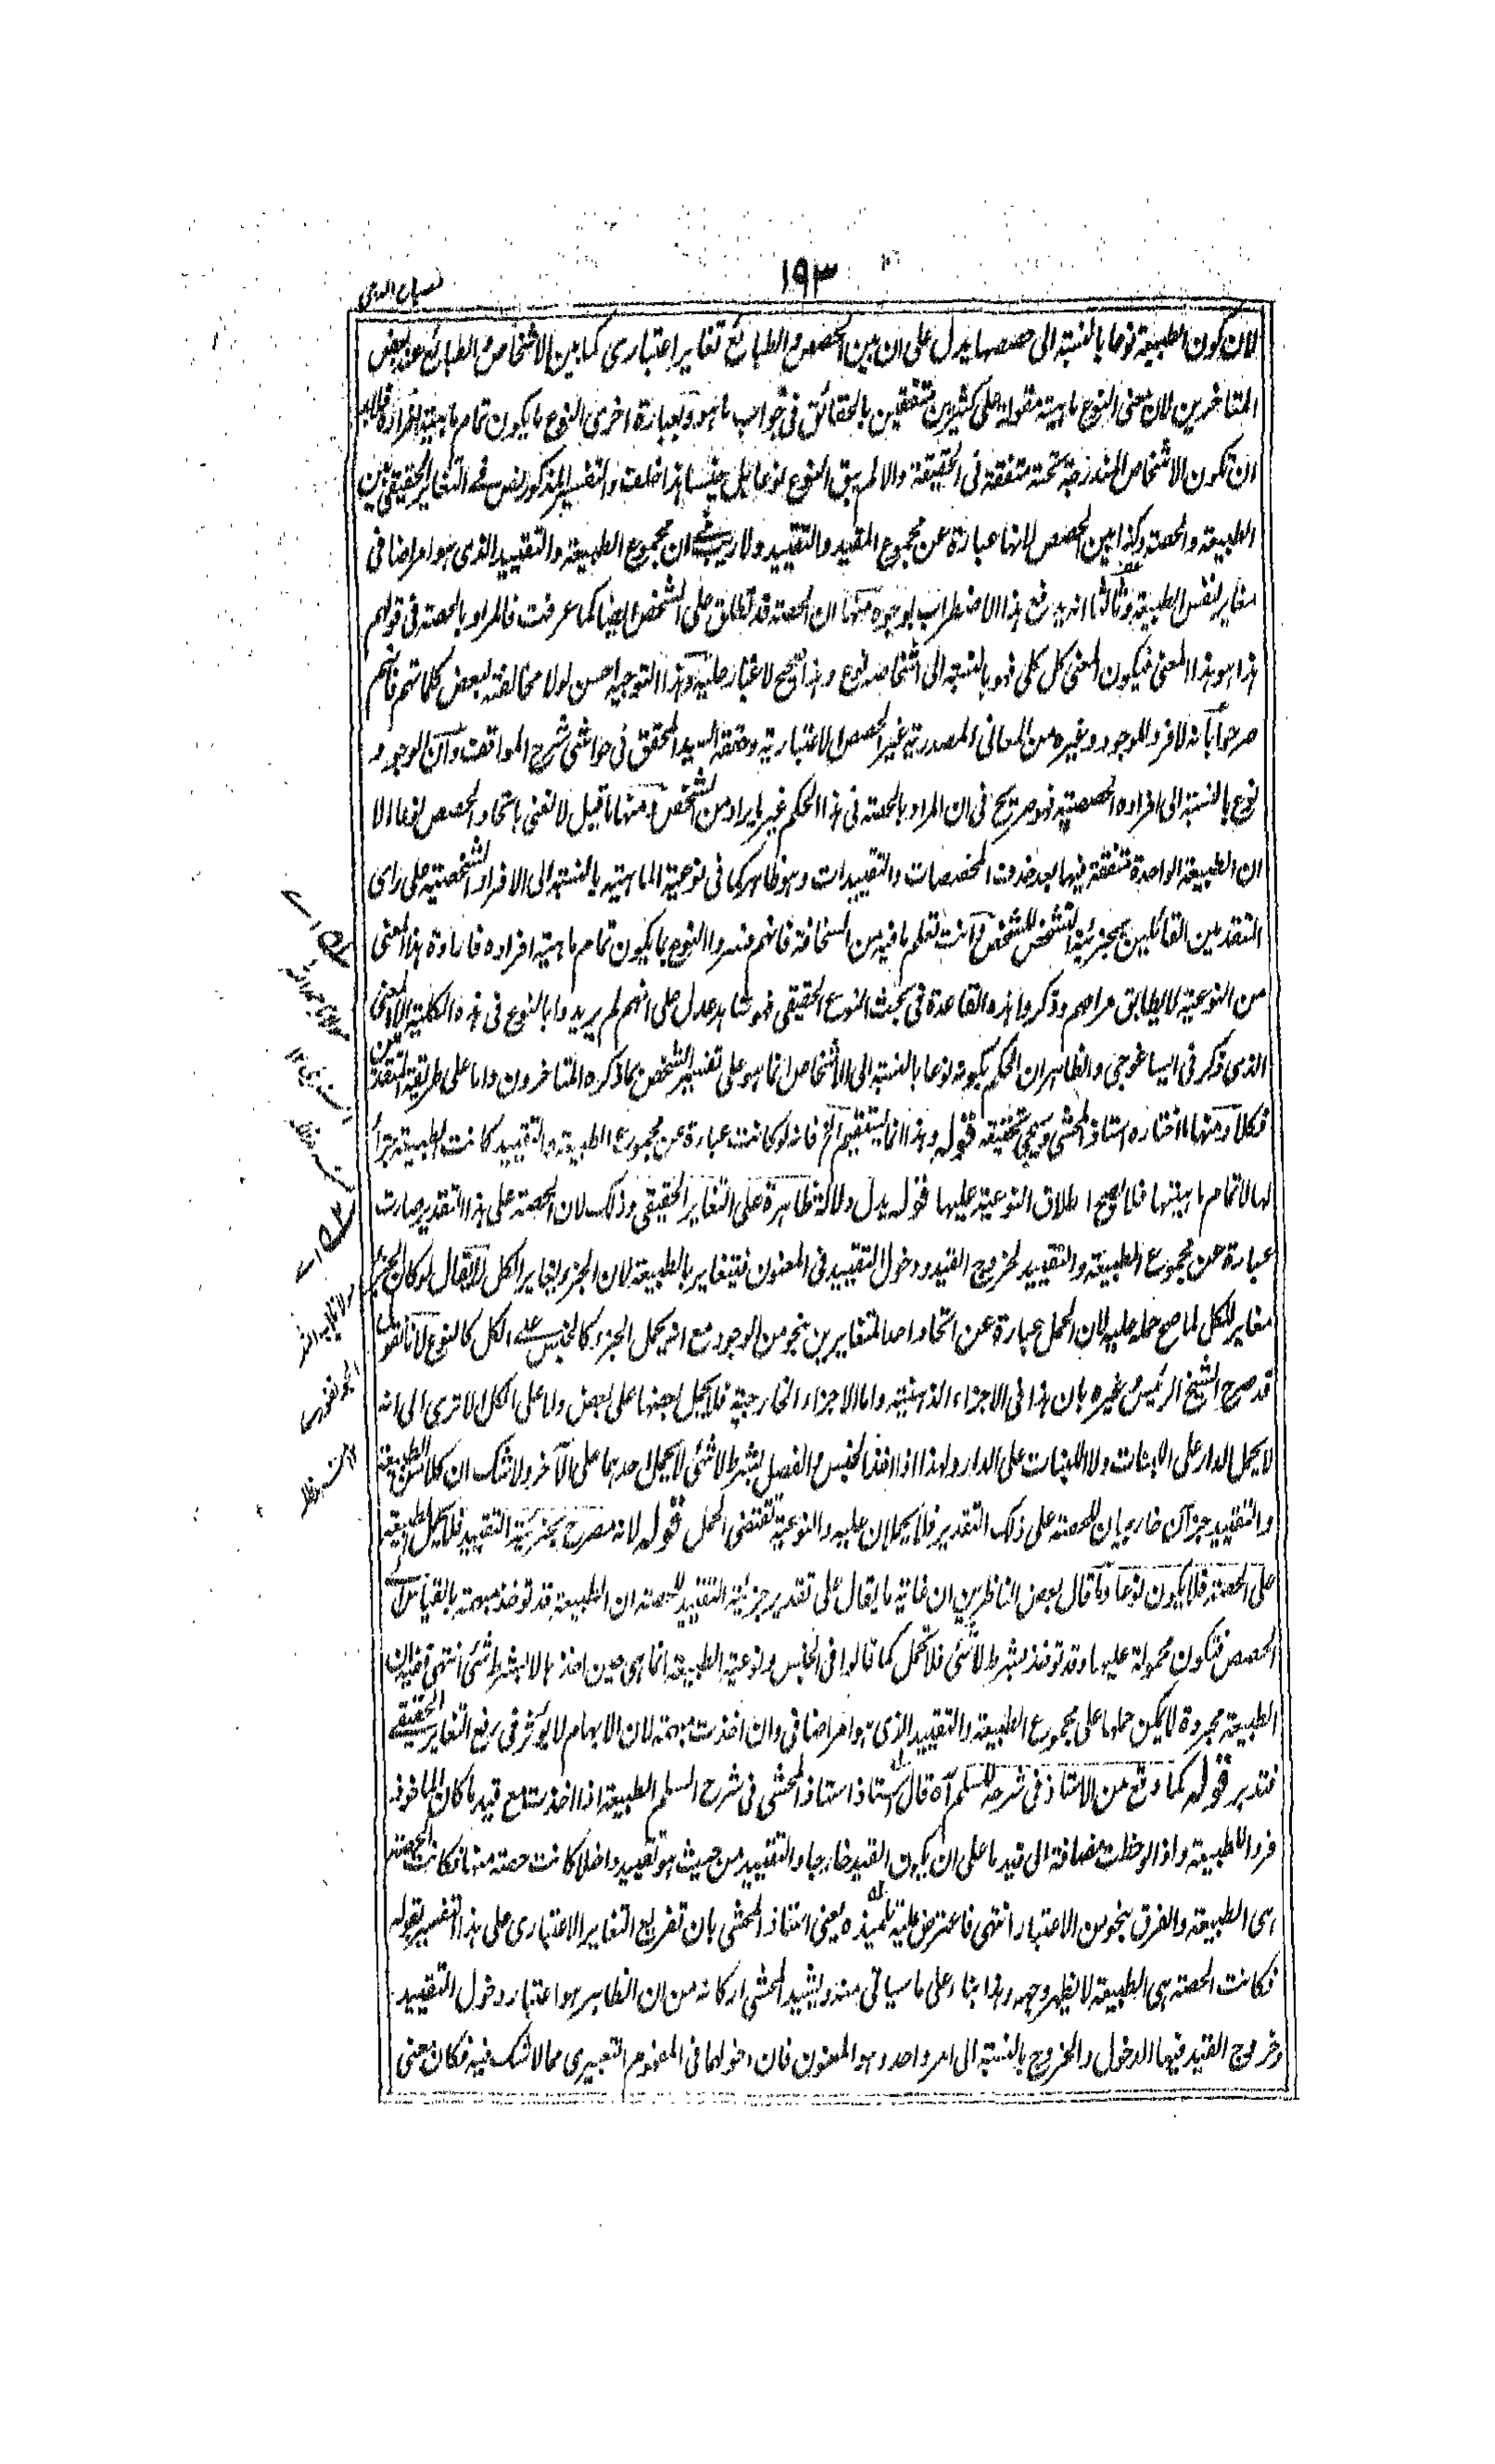 ١٩٣
لان كون الطبيعة نوعا بالنسبة الى حصصها يدل على ان بين الحصص والطبائع تغاير اعتبارى كما بين الاشخاص والطبائع عند بعض
المتاخرين لان معنى النوع ماهية مقولة على كثيرين متفقين بالحقائق فى جواب ما هو وبعبارة اخرى النوع ما يكون تمام ماهية افراده فلابد
ان تكون الاشخاص المندرجة تحته متفقة فى الحقيقة والا لم يبق النوع نوعا بل جنسا هذا خلف والتفسير المذكور نص فى التغاير الحقيقى بين
الطبيعة والحصة وكذا بين الحصص لانها عبارة عن مجموع المقيد والتقييد ولا ريب فى ان مجموع الطبيعة والتقييد الذى هو امر اضافى
مغاير لنفس الطبيعة وثالثا انه يدفع هذا الاضطراب بوجوه منها ان الحصة قد تطلق على الشخص ايضا كما عرفت فالمراد بالحصة فى قولهم
هذا هو هذا المعنى فيكون المعنى كل كلى فهو بالنسبة الى اشخاصه نوع وهذا صحيح لا غبار عليه وهذا التوجيه احسن لولا مخالفته لبعض كلماتهم فانهم
صرحوا بانه لا فرد للوجود وغيره من المعانى المصدرية غير الحصص الاعتبارية وحققه السيد المحقق فى حواشى شرح المواقف وان الوجود
نوع بالنسبة الى افراده الحصصية فهو صريح فى ان المراد بالحصة فى هذا الحكم غير ما يراد من الشخص ومنها ما قيل لا نعنى باتحاد الحصص نوعا الا
ان الطبيعة الواحدة متفقة فيها بعد حذف المخصصات والتقييدات وهو ظاهر كما فى نوعية الماهية بالنسبة الى الافراد الشخصية على راى
المتقدمين القائلين بجزئية التشخص للشخص وانت تعلم ما فيه من السخافة فانهم فسروا النوع بما يكون تمام ماهية افراده فارادة هذا المعنى
من النوعية لا يطابق مرامهم وذكروا هذه القاعدة فى بحث النوع الحقيقى فهو شاهد عدل على انهم لم يريدوا بالنوع فى هذه الكلية الا المعنى
الذى ذكر فى ايساغوجى والظاهر ان الحكم بكونه نوعا بالنسبة الى الاشخاص انما هو على تفسير الشخص بما ذكره المتاخرون واما على طريقة المتقدمين
فكلا ومنها ما اختاره استاذ المحشى وسيجئ تحقيقه قوله وهذا انما يستقيم آه فانه لو كانت عبارة عن مجموع الطبيعة والتقييد كانت الطبيعة جزأ
لها لا تمام ماهيتها فلا يصح اطلاق النوعية عليها قوله يدل دلالة ظاهرة على التغاير الحقيقى وذلك لان الحصة على هذا التقدير صارت
عبارة عن مجموع الطبيعة والتقييد لخروج القيد ودخول التقييد فى المعنون فيتغاير بالطبيعة لان الجزء يغاير الكل لا يقال لو كان الجزء
مغاير للكل لما صح حمله عليه لان الحمل عبارة عن اتحاد احد المتغايرين بنحو من الوجود مع انه يحمل الجزء كالجنس على الكل كالنوع لانا نقول
قد صرح الشيخ الرئيس وغيره بان هذا فى الاجزاء الذهنية واما الاجزاء الخارجية فلا يحمل بعضها على بعض ولا على الكل الا ترى الى انه
لا يحمل الدار على اللبنات ولا اللبنات على الدار ولهذا اذا اخذ الجنس والفصل بشرط لا شئ لا يحمل احدهما على الآخر ولا شك ان كلا من الطبيعة
والتقييد جزآن خارجيان للحصة على ذلك التقدير فلا يحملان عليه والنوعية تقتضى الحمل قوله لانه مصرح بجزئية التقييد فلا يحمل الطبيعة
على الحصة فلا يكون نوعا وما قال بعض الناظرين ان غاية ما يقال على تقدير جزئية التقييد للحصة ان الطبيعة قد توخذ مبهمة بالقياس الى
الحصص فتكون محمولة عليها وقد توخذ بشرط لا شئ فلا تحمل كما قالوا فى الجنس ونوعية الطبيعة انما هى حين اخذها لا بشرط شئ انتهى ففيه ان
الطبيعة مجردة لا يمكن حملها على مجموع الطبيعة والتقييد الذى هو امر اضافى وان اخذت مبهمة لان الابهام لا يوثر فى رفع التغاير الحقيقى
فتدبر قوله كما وقع من الاستاذ فى شرحه للسلم آه قال استاذ استاذ المحشى فى شرح السلم الطبيعة اذا اخذت مع قيد ما كان الماخوذ
فردا للطبيعة واذا لوحظت مضافة الى قيد ما على ان يكون القيد خارجا والتقييد من حيث هو تقييد داخلا كانت حصة منها فكانت الحصة
هى الطبيعة والفرق بنحو من الاعتبار انتهى فاعترض عليه تلميذه يعنى استاذ المحشى بان تفريع التغاير الاعتبارى على هذا التفسير بقوله
فكانت الحصة هى الطبيعة لا يظهر وجهه وهذا بناء على ما سياتى منه ويشيد المحشى اركانه من ان الظاهر هو اعتبار دخول التقييد
وخروج القيد فيها الدخول والخروج بالنسبة الى امر واحد وهو المعنون فان دخولهما فى المفهوم التعبيرى مما لا شك فيه فكان معنى